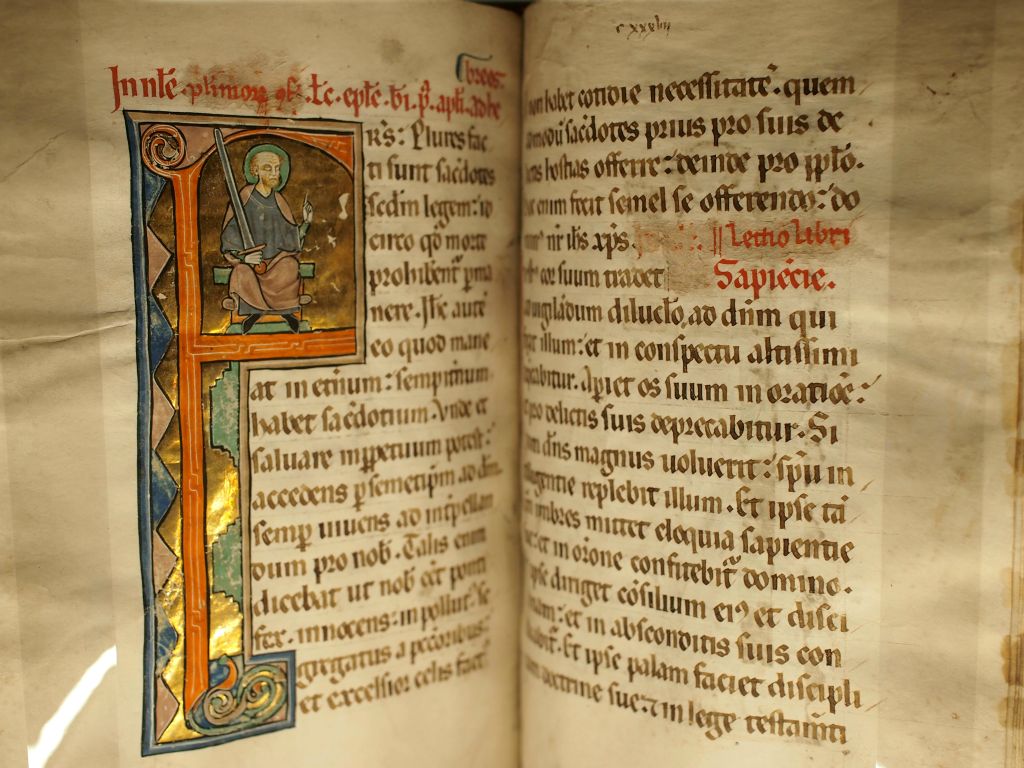 breos.
In nat̄e · plimorꝝ ꝯf̄. Lc̄. epl̄e. bī. p̄. apl̄i. ad he
RS̄: Plures fac
ti sunt sac̄dotes
sc̄dm legem: id
circo qđ morte
prohibent᷑ ꝑma
nere. Ih̄c autē
eo quod mane
at in et̄num: sempit̄num
habet sac̄dotium. Vnde et
saluare in ꝑpetuum potest:
accedens ꝑ semetip̄m ad dm̄.
semꝑ uiuens ad int̄pellan
dum pro nob̄. Talis enim
dicebat ut nob̄ eēt ponti
fex. innocens: in pollut᷑. se
gregatus a peccoribus:
et excelsior celis fact᷑
c xxxiiij
non habet cotidie necessitatē. quem
modū sac̄dotes prius pro suis de
hostias offerre: deinde pro ppl̄o.
enim fecit semel se offerendo: do
nr̄ ih̄s xp̄s. Lectio libri
cor suum tradet Sapiēcie.
uigilādum diluclo, ad dn̄m qui
illum: et in conspectu altissimi
abitur. Apiet os suum in oratiōe:
pro delictis suis deprecabitur. Si
dn̄s magnus uoluerit: spū in
replebit illum. Et ipse tā
imbres mittet eloquia sapientie
et in or̄one confitebit᷑ domino.
ipse diriget cōsilium eiꝰ et disci
nam: et in absconditis suis con
Et ipse palam faciet discipli
doctrine sue: ⁊ in lege testam̄ti